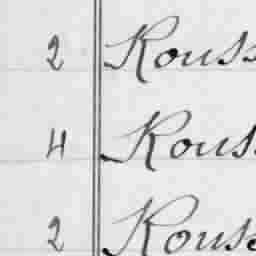 2 Rouss
4 Rous
2 Rouss